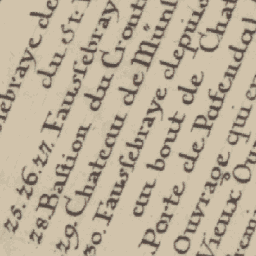 ssebraye de
du St.
25. 26. 27. Faussebray
28. Bastion du Crout
29. Chateau de Müns
30. Faussebraye depuis
au bout de Chat
Porte de Passendal
Ouvrage qui
Vieux Ou